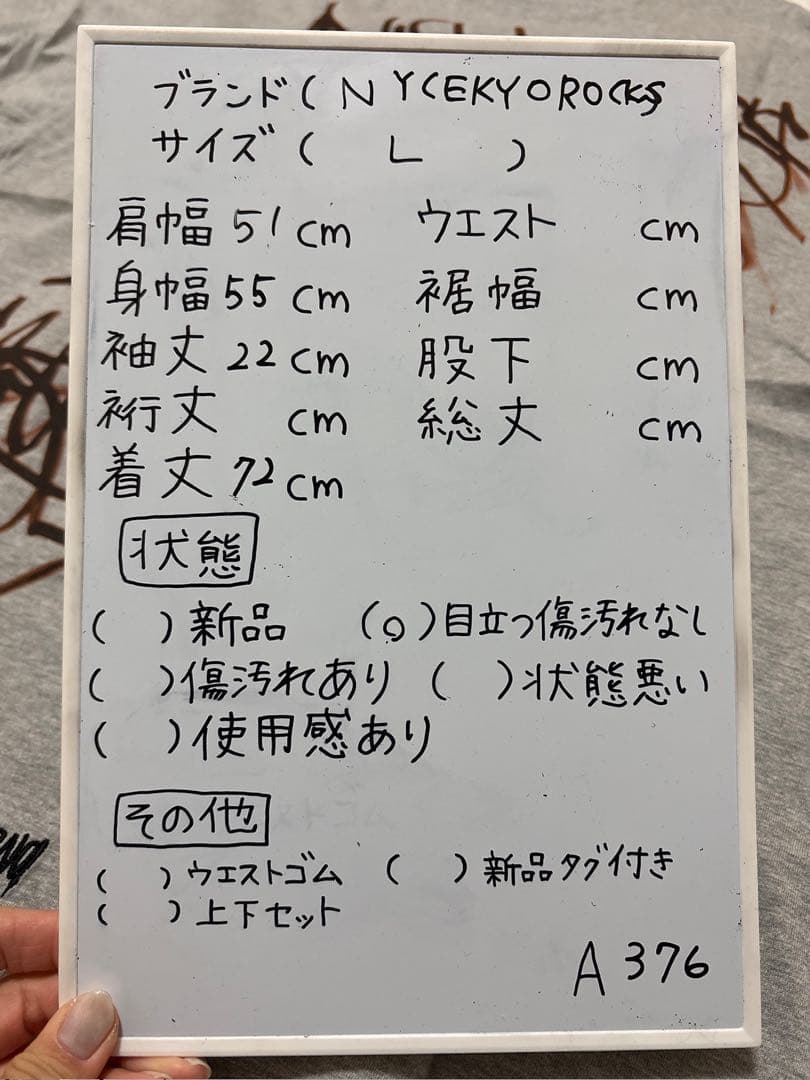 ブランド( NYCEKYOROCKS
サイズ( L )
肩幅 51 cm ウエスト cm
身幅 55 cm 裾幅 cm
袖丈 22 cm 股下 cm
裄丈 cm 総丈 cm
着丈 72 cm
状態
( )新品 (○)目立つ傷汚れなし
( )傷汚れあり ( )状態悪い
( )使用感あり
その他
( )ウエストゴム ( )新品タグ付き
( )上下セット
A 376